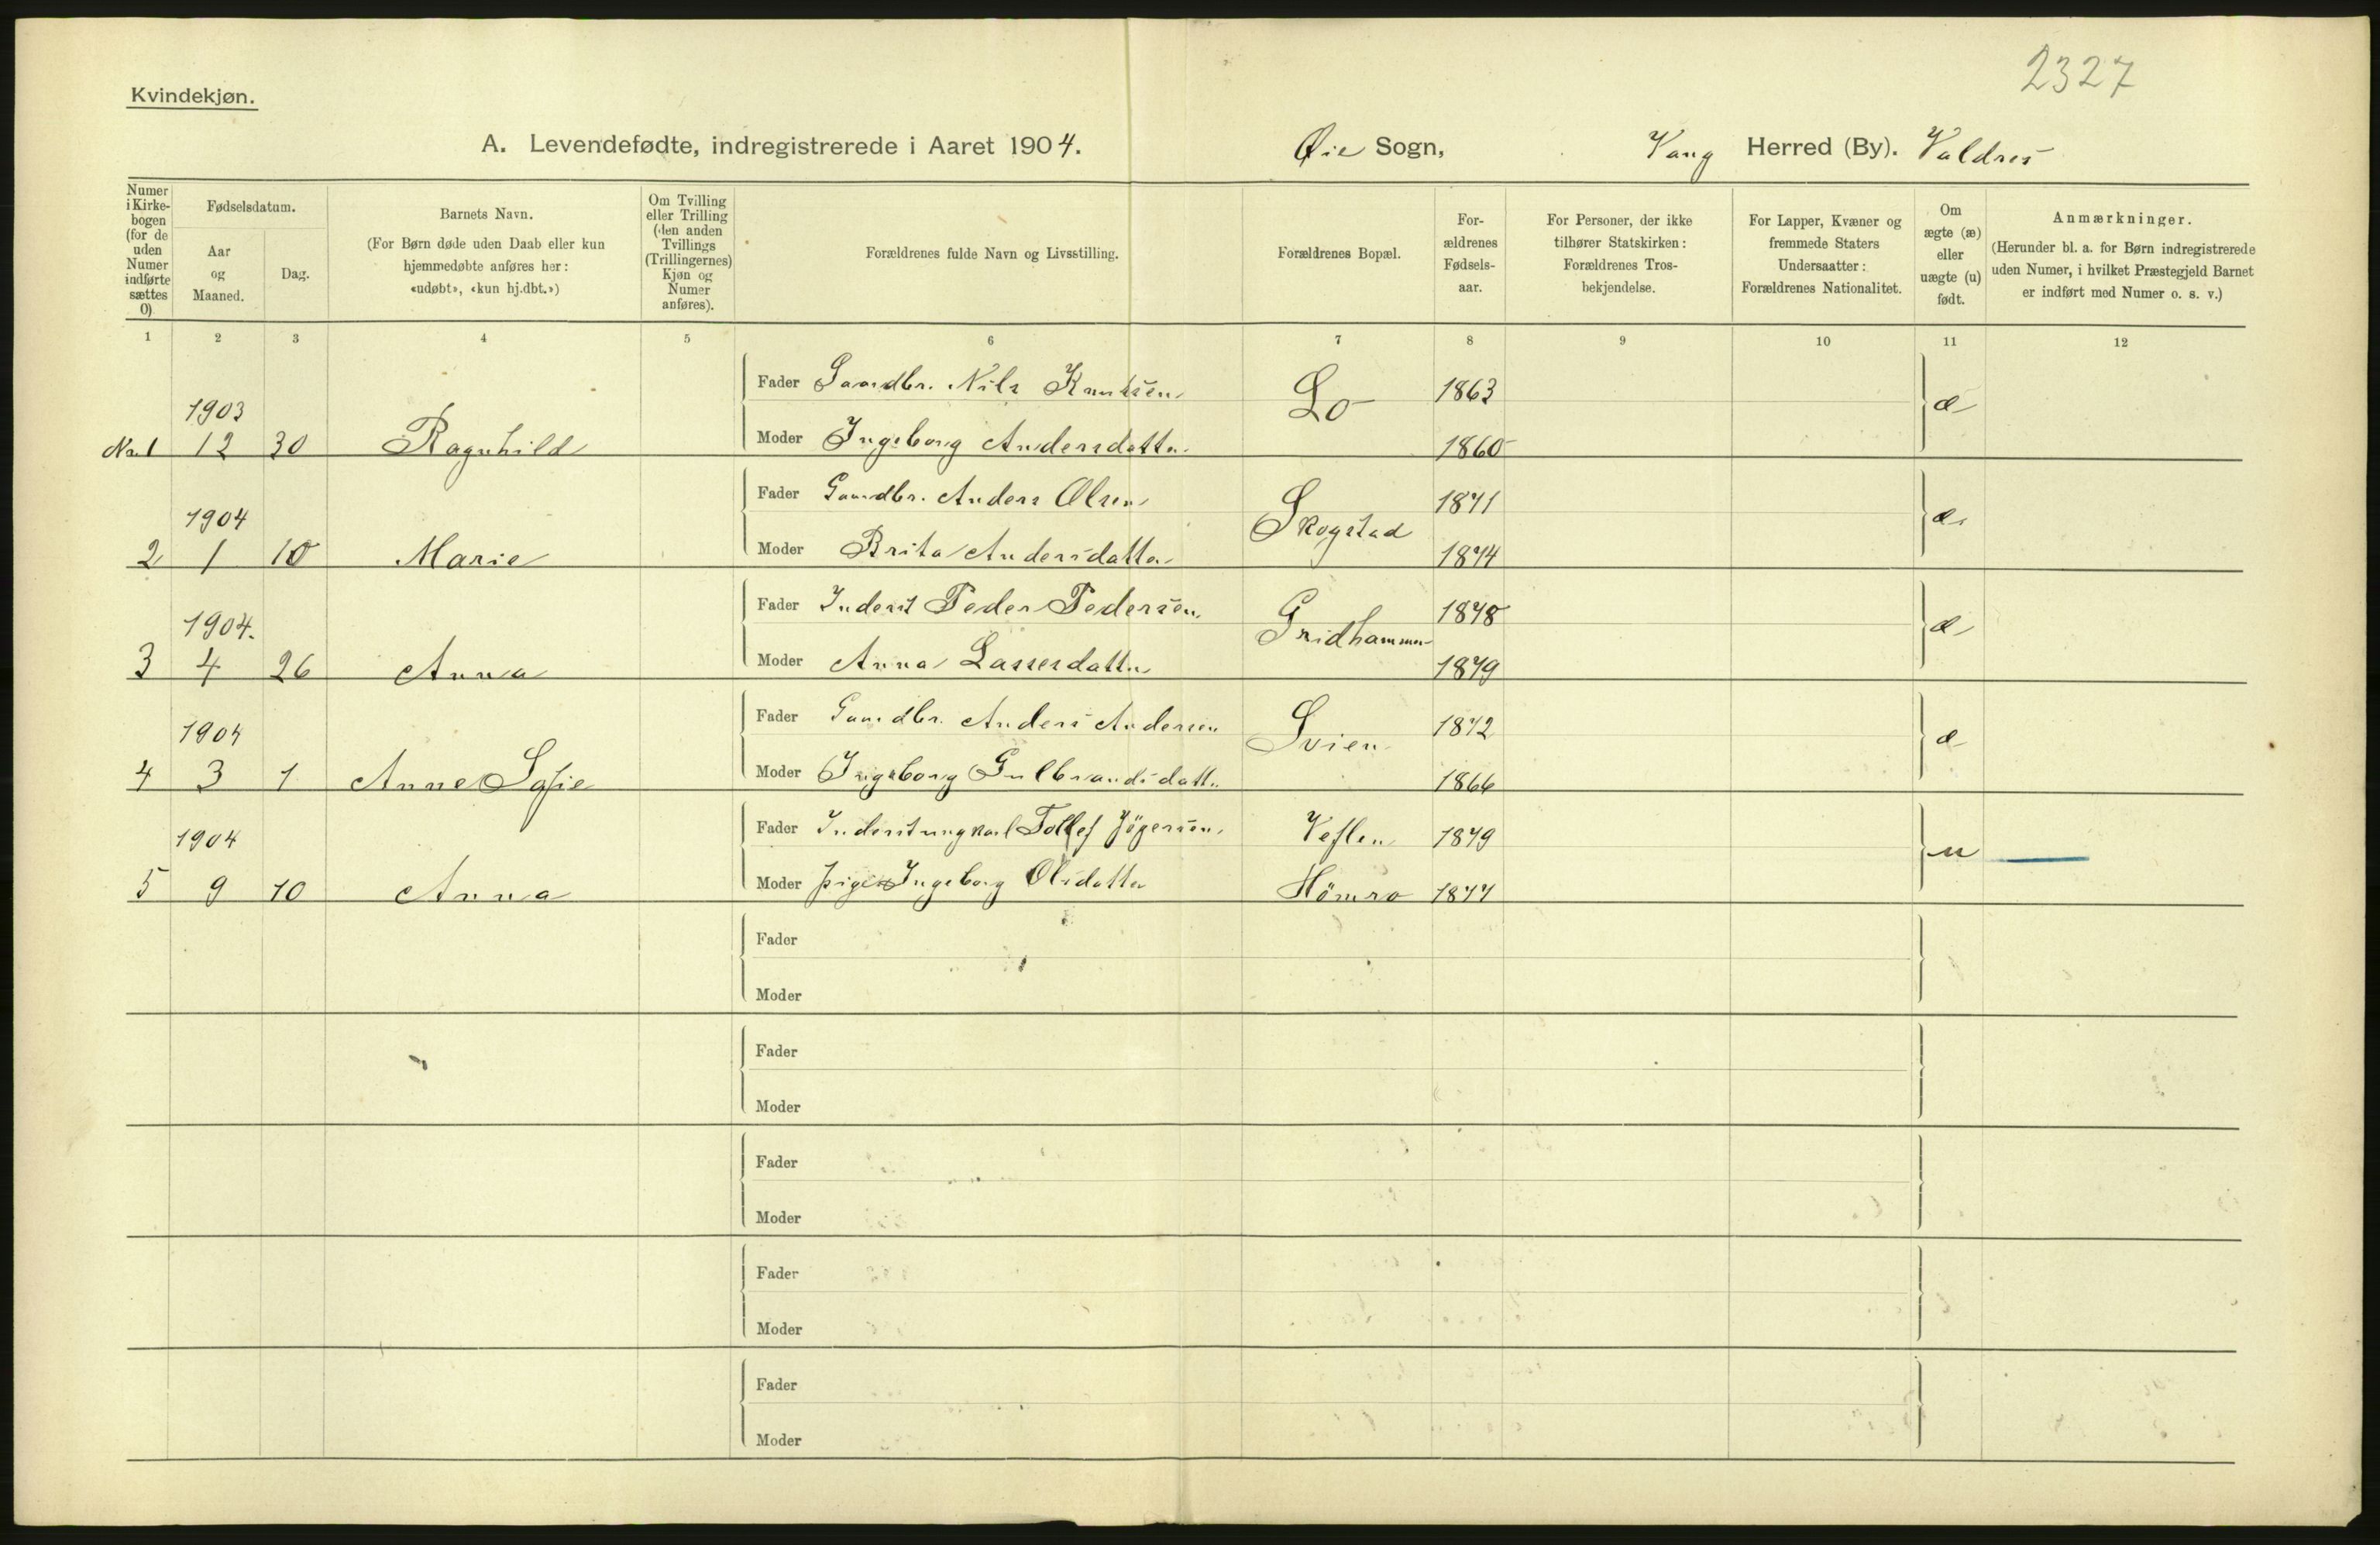 2327
Kvindekjøn.
A. Levendefødte, indregistrerede i Aaret 1904. Øie Sogn, Vang Herred (By). Valdres
Numer i Kirkebogen (for de uden Numer indførte sættes 0)
Fødselsdatum.
Aar og Maaned.
Dag.
Barnets Navn.
(For Børn døde uden Daab eller kun
hjemmedøbte anføres her:
«udøbt», «kun hj.dbt.»)
Om Tvilling
eller Trilling
(den anden
Tvillings
(Trillingernes)
Kjøn og
Numer
anføres).
Forældrenes fulde Navn og Livsstilling.
Forældrenes Bopæl.
For-
ældrenes
Fødsels-
aar.
For Personer, der ikke
tilhører Statskirken:
Forældrenes Tros-
bekjendelse.
For Lapper, Kvæner og
fremmede Staters
Undersaatter:
Forældrenes Nationalitet.
Om
ægte (æ)
eller
uægte (u)
født.
Anmærkninger.
(Herunder bl. a. for Børn indregistrerede
uden Numer, i hvilket Præstegjeld Barnet
er indført med Numer o. s. v.)
1 2 3 4 5 6 7 8 9 10 11 12
Fader Gaardbr. Nils Knutsen Lo 1863 æ
1903
No. 1 12 30 Ragnhild Moder Ingeborg Andersdatter 1860
Fader Gaardbr. Anders Olsen Skogstad 1871 æ
1904
2 1 10 Marie Moder Brita Andersdatter 1874
Fader Inderst Peder Pedersen Gridhammer 1878 æ
1904.
3 4 26 Anna Moder Anna Lassesdatter 1879
Fader Gaardbr. Anders Andersen Svien 1872 æ
1904
4 3 1 Anne Sofie Moder Ingeborg Gulbrandsdatter 1866
Fader Inderstungkarl Tollef Jögersen Veflen 1879 u
1904
5 9 10 Anna Moder pige Ingeborg Olsdatter Hömro 1877
Fader
Moder
Fader
Moder
Fader
Moder
Fader
Moder
Fader
Moder